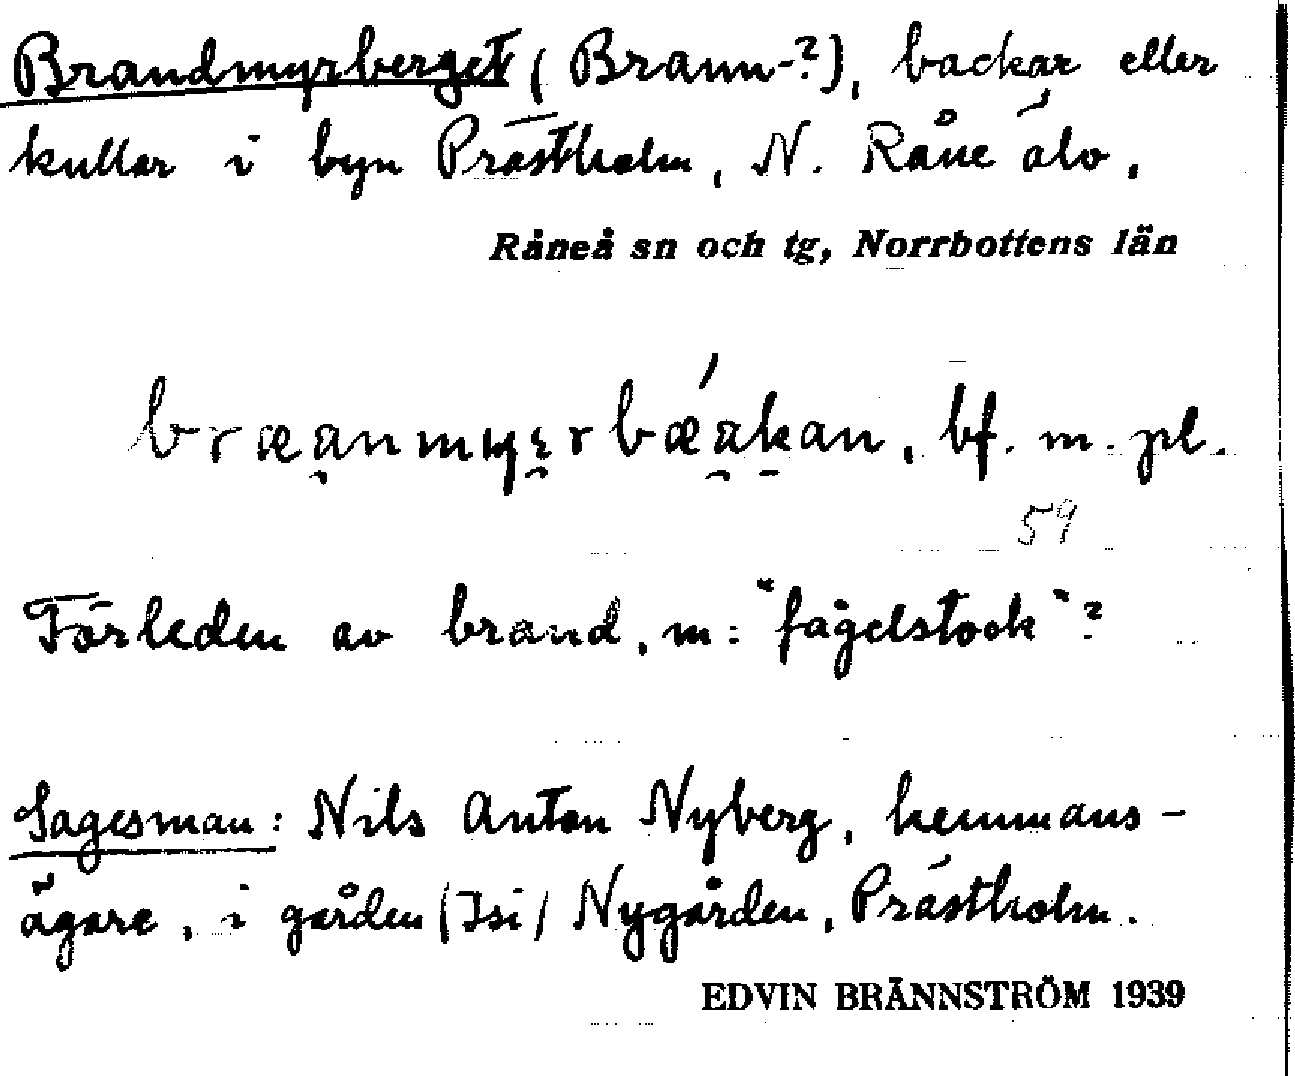 Brandmyrberget (Brann-?), backar eller
kullar i byn Prästholm, N. Råne älv.
Råneå sn och tg, Norrbottens län
bræanmyɛrbæakan, bf. m. pl.
59
Förleden av brand, m: "fågelstock"?
Sagesman: Nils Anton Nyberg, hemmans-
ägare, i gården (Isi/ Nygården, Prästholm.
EDVIN BRÄNNSTRÖM 1939